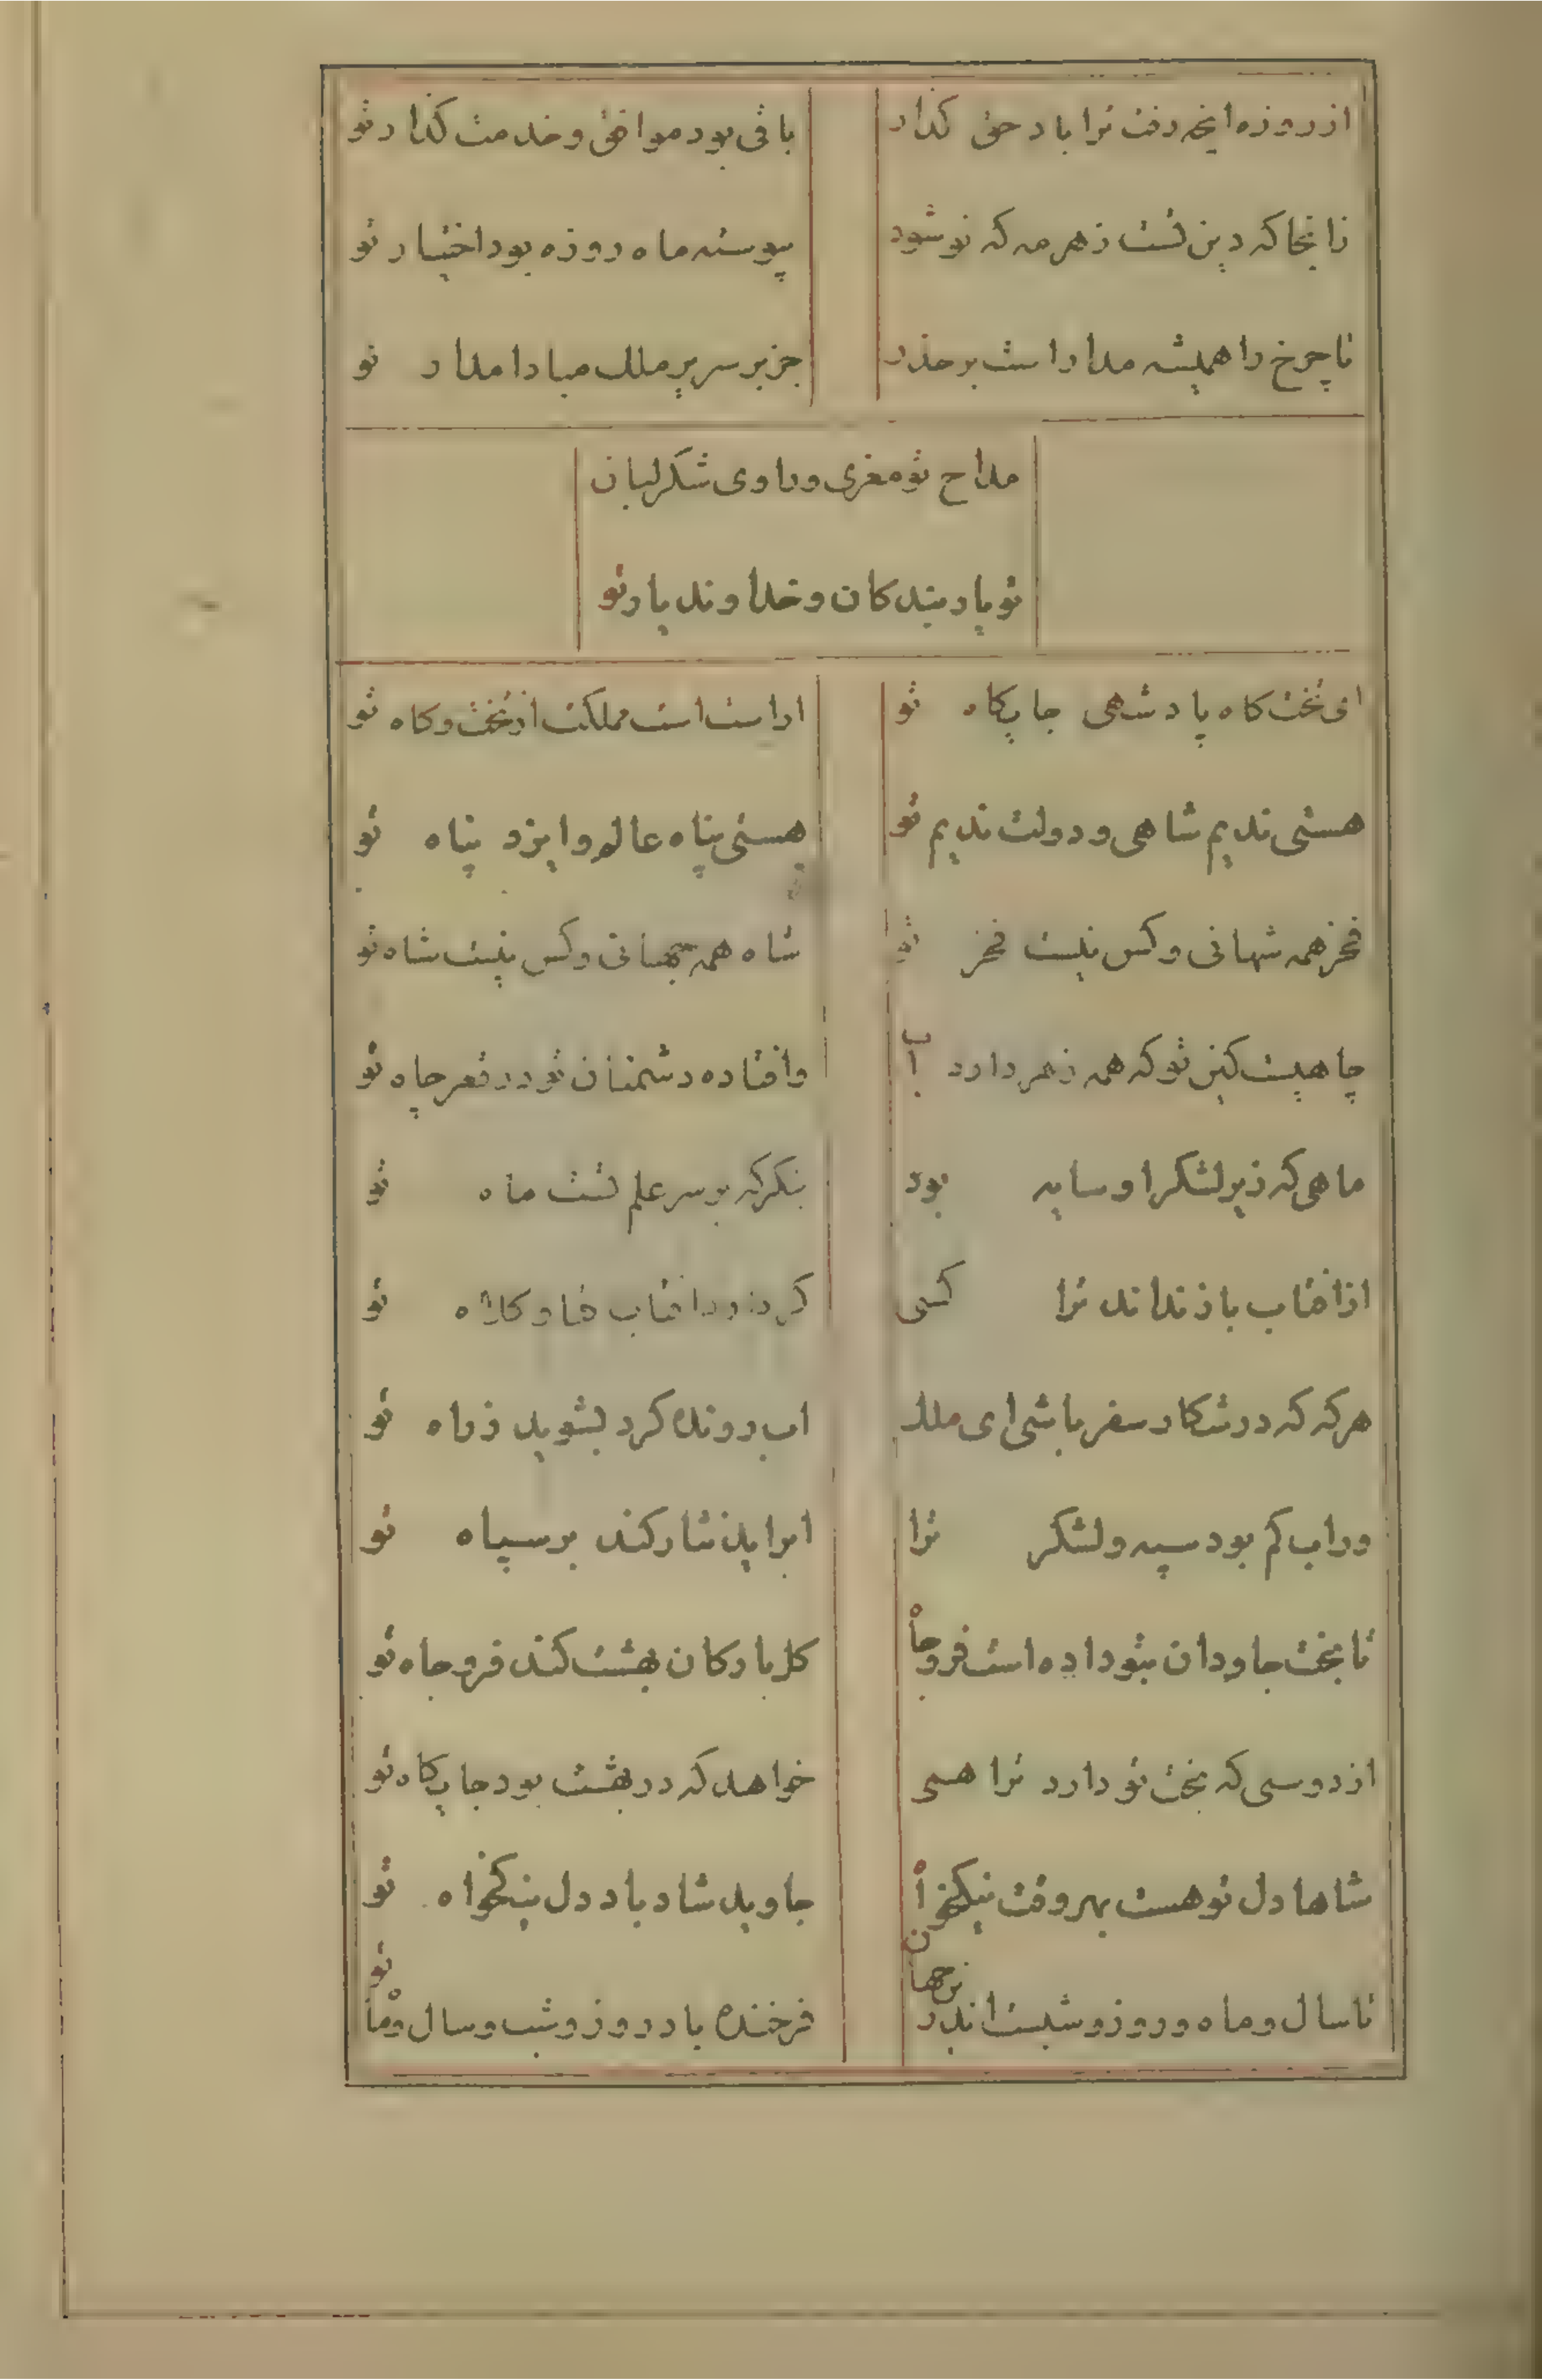 از روزه انچه رفت ترا باد حق کذار
باقی بود موافق و خدمت کذار تو
زانجا که دین تست ز هر مه که نو شود
پیوسته ماه روزه بود اختیار تو
تا چرخ را همیشه مدار است بر مدر
جز بر سریر ملک مبادا مدار تو
مداح تو معزی و راوی شکر لبان
تو یار بندکان و خداوند یار تو
ای تخت کاه پادشهی جایکاه تو
اراست است مملکت از تخت و کاه تو
هستی ندیم شاهی و دولت ندیم تو
هستی پناه عالم و ایزد پناه تو
فخر همه شهانی و کس نیست فخر تو
شاه همه جهانی و کس نیست شاه تو
چاهیست کین تو که همه زهر دارد آب
وافتاده دشمنان تو در قعر چاه تو
ماهی که زیر لشکر او سایه بود
بنکر که بر سر علم تست ماه تو
از افتاب باز نداند ترا کسی
کر در رود افتاب قبا و کلاه تو
هرکه که در شکار سفر باشی ای ملک
اب رونده کرد بشوید ز راه تو
ور اب کم بود سپه و لشکر ترا
ابر اید نثار کند بر سپاه تو
تا بخت جاودان بتو داده است فر و جاه
کل بار کان بهشت کند فر و جاه تو
از دوستی که بخت تو دارد ترا همی
خواهد که در بهشت بود جایکاه تو
شاها دل تو هست بهر وقت نیکخواه
جاوید شاد باد دل نیکخواه تو
تا سال و ماه و روز و شبست اندر نجهان
فرخنده باد روز و شب و سال و ماه تو